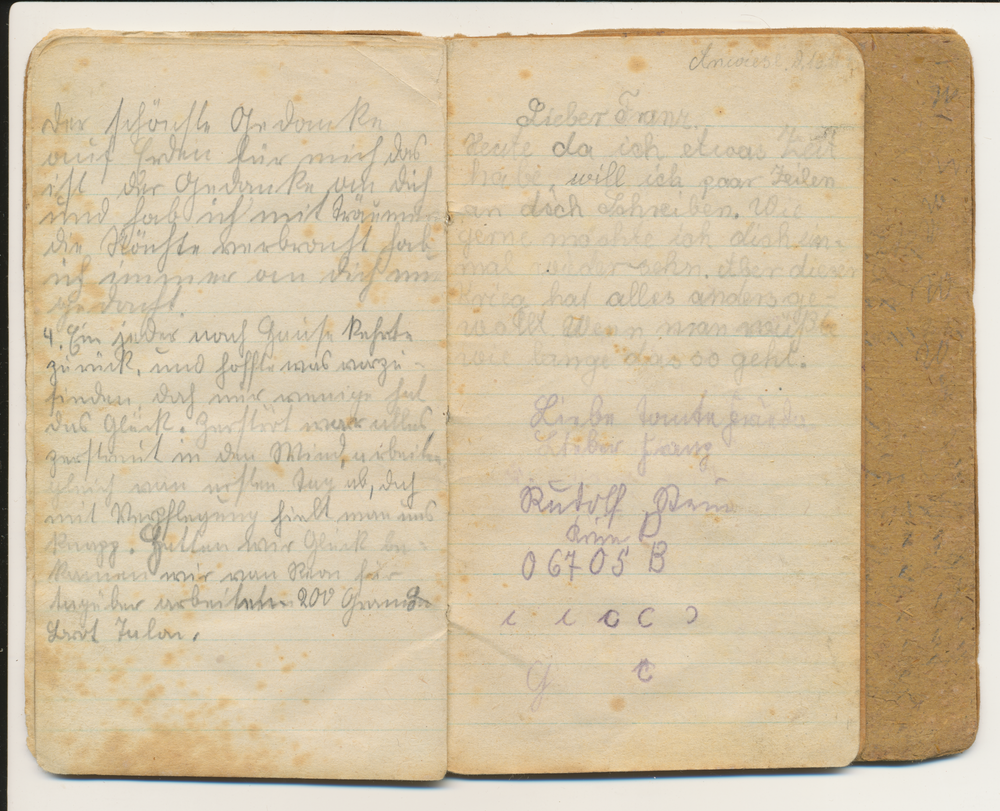 Der schönste Gedanke
auf Erden für mich das
ist der Gedanke an dich
und hab ich mit träumen
die Nächte verbracht hab
ich immer an dich nur
gedacht.
4. Ein jeder nach Hause kehrte
zurück, und hoffte was vorzu-
finden, doch nur wenige hat
das Glück. Zerstört war alles
zerstreut in den Wind, arbeiten
gleich vom ersten Tag ab, doch
mit Verpflegung hielt man uns
knapp. Hatten wir Glück be-
kamen wir von
tagüber arbeiten 200 Gramm
Brot
Lieber Franz.
Heute da ich etwas Zeit
habe, will ich paar Zeilen
an dich Schreiben. Wie
gerne möchte ich dich ein-
mal wieder sehn. Aber dieser
Krieg hat alles anders ge-
wollt Wenn man wüßte
wie lange das so geht.
Liebe tante
Lieber Franz
Rudolf
06705 B